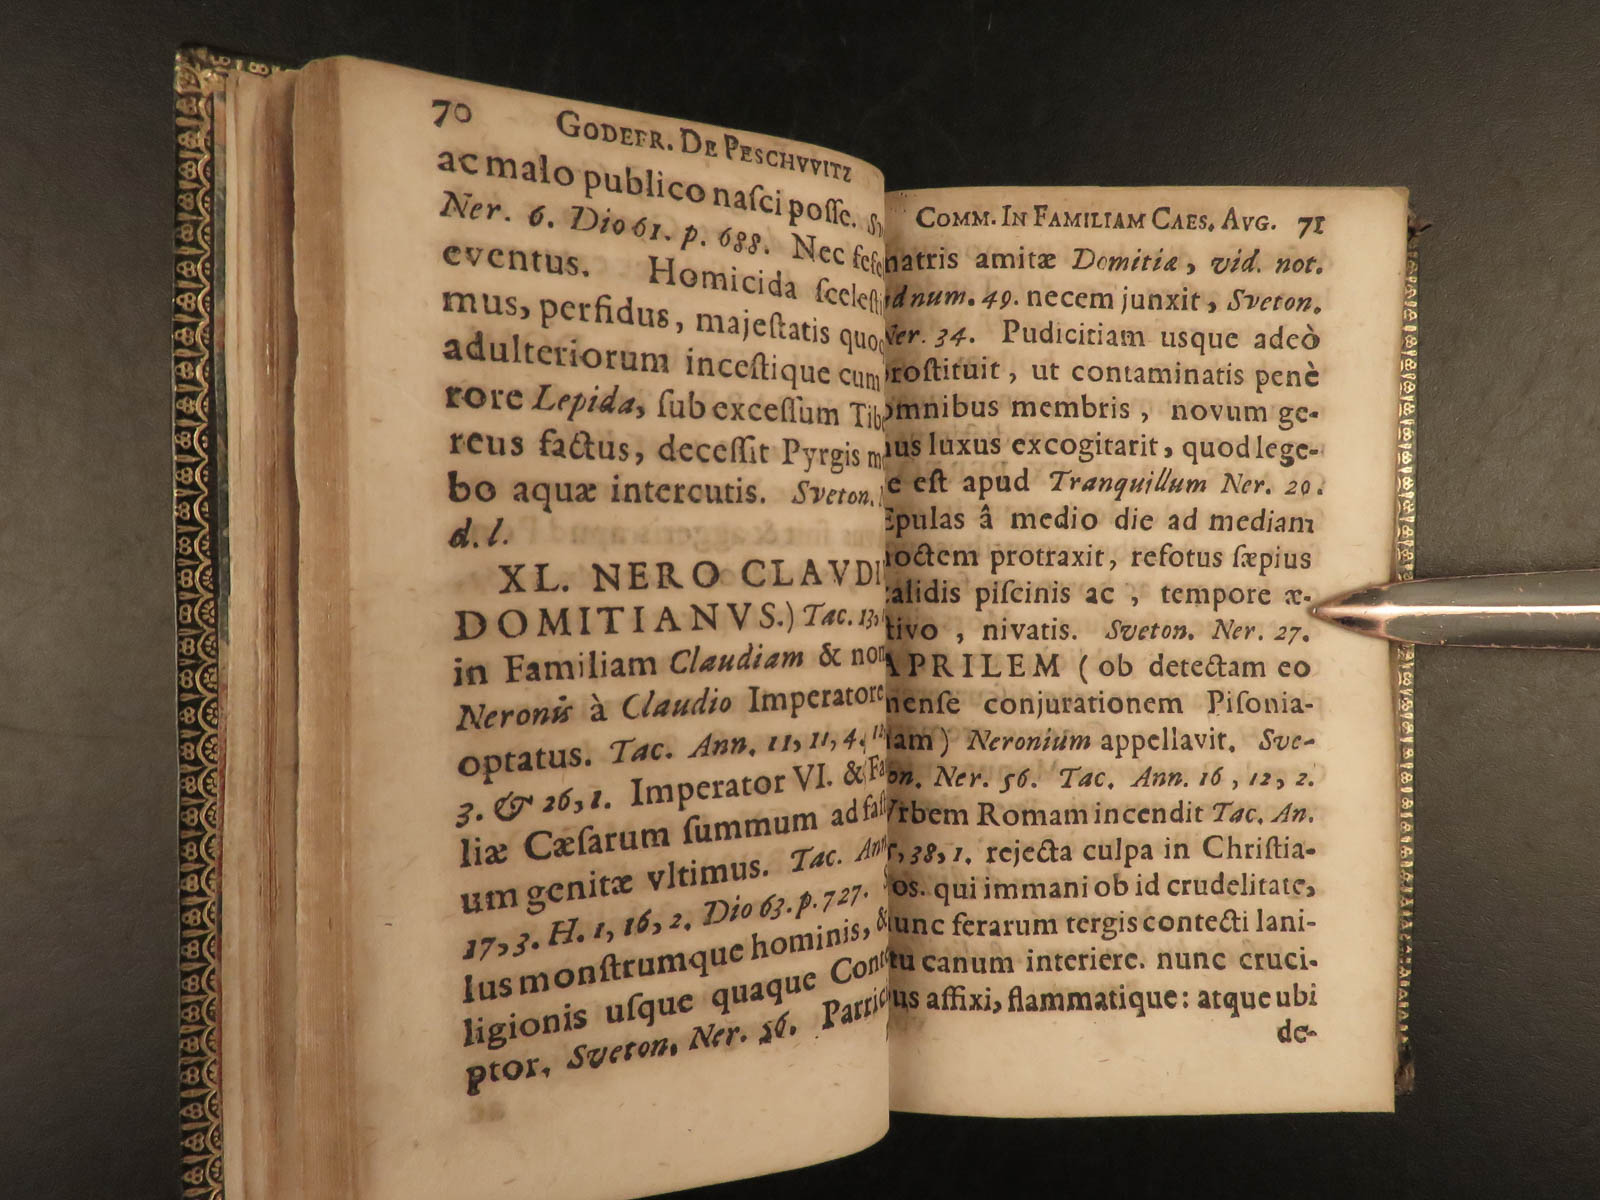 70 GODEFR. DE PESCHVVITZ
ac malo publico naſci poſſe.
Ner. 6. Dio 61. p. 688. Nec
eventus. Homicida
mus, perfidus, majeſtatis
adulteriorum inceſtique cum
rore Lepida, ſub exceſſum
reus factus, deceſſit Pyrgis
bo aquæ intercutis. Sveton.
d. l.
XL. NERO CLAVDI
DOMITIANVS.) Tac. 13,
in Familiam Claudiam & non
Neronis à Claudio Imperatore
optatus. Tac. Ann. 11, 11, 4.
3. & 26, 1. Imperator VI. &
liæ Cæſarum ſummum ad
um genitæ vltimus. Tac. Ann
17, 3. H. 1, 16, 2. Dio 63. p. 727.
lus monſtrumque hominis, &
ligionis uſque quaque
ptor. Sveton. Ner. 56.
COMM. IN FAMILIAM CAES. AVG. 71
matris amitæ Domitiæ, vid. not.
num. 49. necem junxit, Sveton.
Ner. 34. Pudicitiam usque adeò
proſtituit, ut contaminatis penè
omnibus membris, novum ge-
nus luxus excogitarit, quod lege-
e eſt apud Tranquillum Ner. 29.
Epulas â medio die ad mediam
noctem protraxit, refotus ſæpius
calidis piſcinis ac, tempore æ-
tivo, nivatis. Sveton. Ner. 27.
APRILEM (ob detectam eo
menſe conjurationem Piſonia-
nam) Neronium appellavit. Sve-
on. Ner. 56. Tac. Ann. 16, 12, 2.
Vrbem Romam incendit Tac. An.
38, 1. rejecta culpa in Chriſtia-
os. qui immani ob id crudelitate,
nunc ferarum tergis contecti lani-
tu canum interiere. nunc cruci-
bus affixi, flammatique: atque ubi
de-